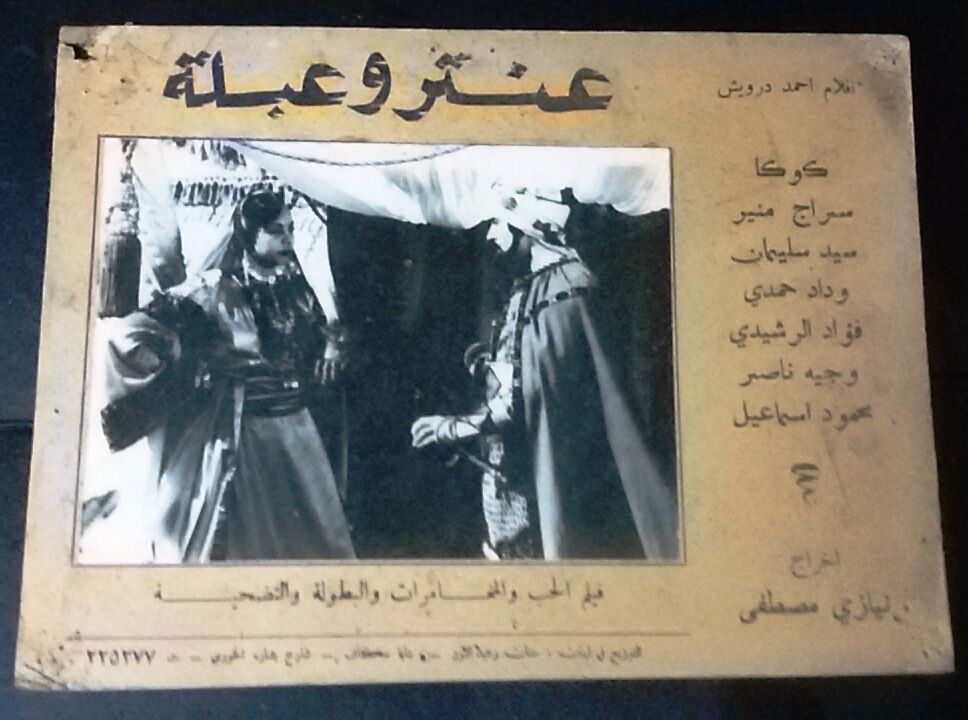 عنتر وعبلة
افلام احمد درويش
كوكا
سراج منير
سيد سليمان
وداد حمدي
فؤاد الرشيدي
وجيه ناصر
محمود اسماعيل
اخراج
نيازي مصطفى
فيلم الحب والمغامرات والبطولة والتضحية
التوزيع في لبنان : شارع بشاره الخوري - ت ٢٢٥٢٧٧